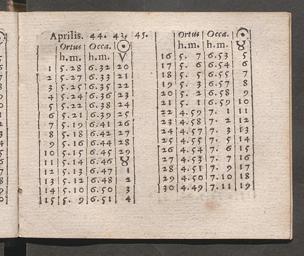 Aprilis. 44. 43. 45.
Ortus Occa. ☉
h.m. h.m. ♈
1 5.28 6.32 20
2 5.27 6.33 21
3 5.25 6.35 22
4 5.24 6.36 23
5 5.22 6.38 24
6 5.21 6.39 25
7 5.19 6.41 26
8 5.18 6.42 27
9 5.16 6.44 28
10 5.15 6.45 29
11 5.14 6.46 ♉
12 5.13 6.47 1
13 5.12 6.48 2
14 5.10 6.50 3
15 5. 9 6.51 4
Ortus Occa. ☉
h.m. h.m. ♉
16 5. 7 6.53 5
17 5. 6 6.54 6
18 5. 5 6.55 7
19 5. 3 6.57 8
20 5. 2 6.58 9
21 5. 1 6.59 10
22 4.59 7. 1 11
23 4.58 7. 2 12
24 4.57 7. 3 13
25 4.55 7. 5 14
26 4.54 7. 6 15
27 4.53 7. 7 16
28 4.51 7. 9 17
29 4.50 7.10 18
30 4.49 7.11 19